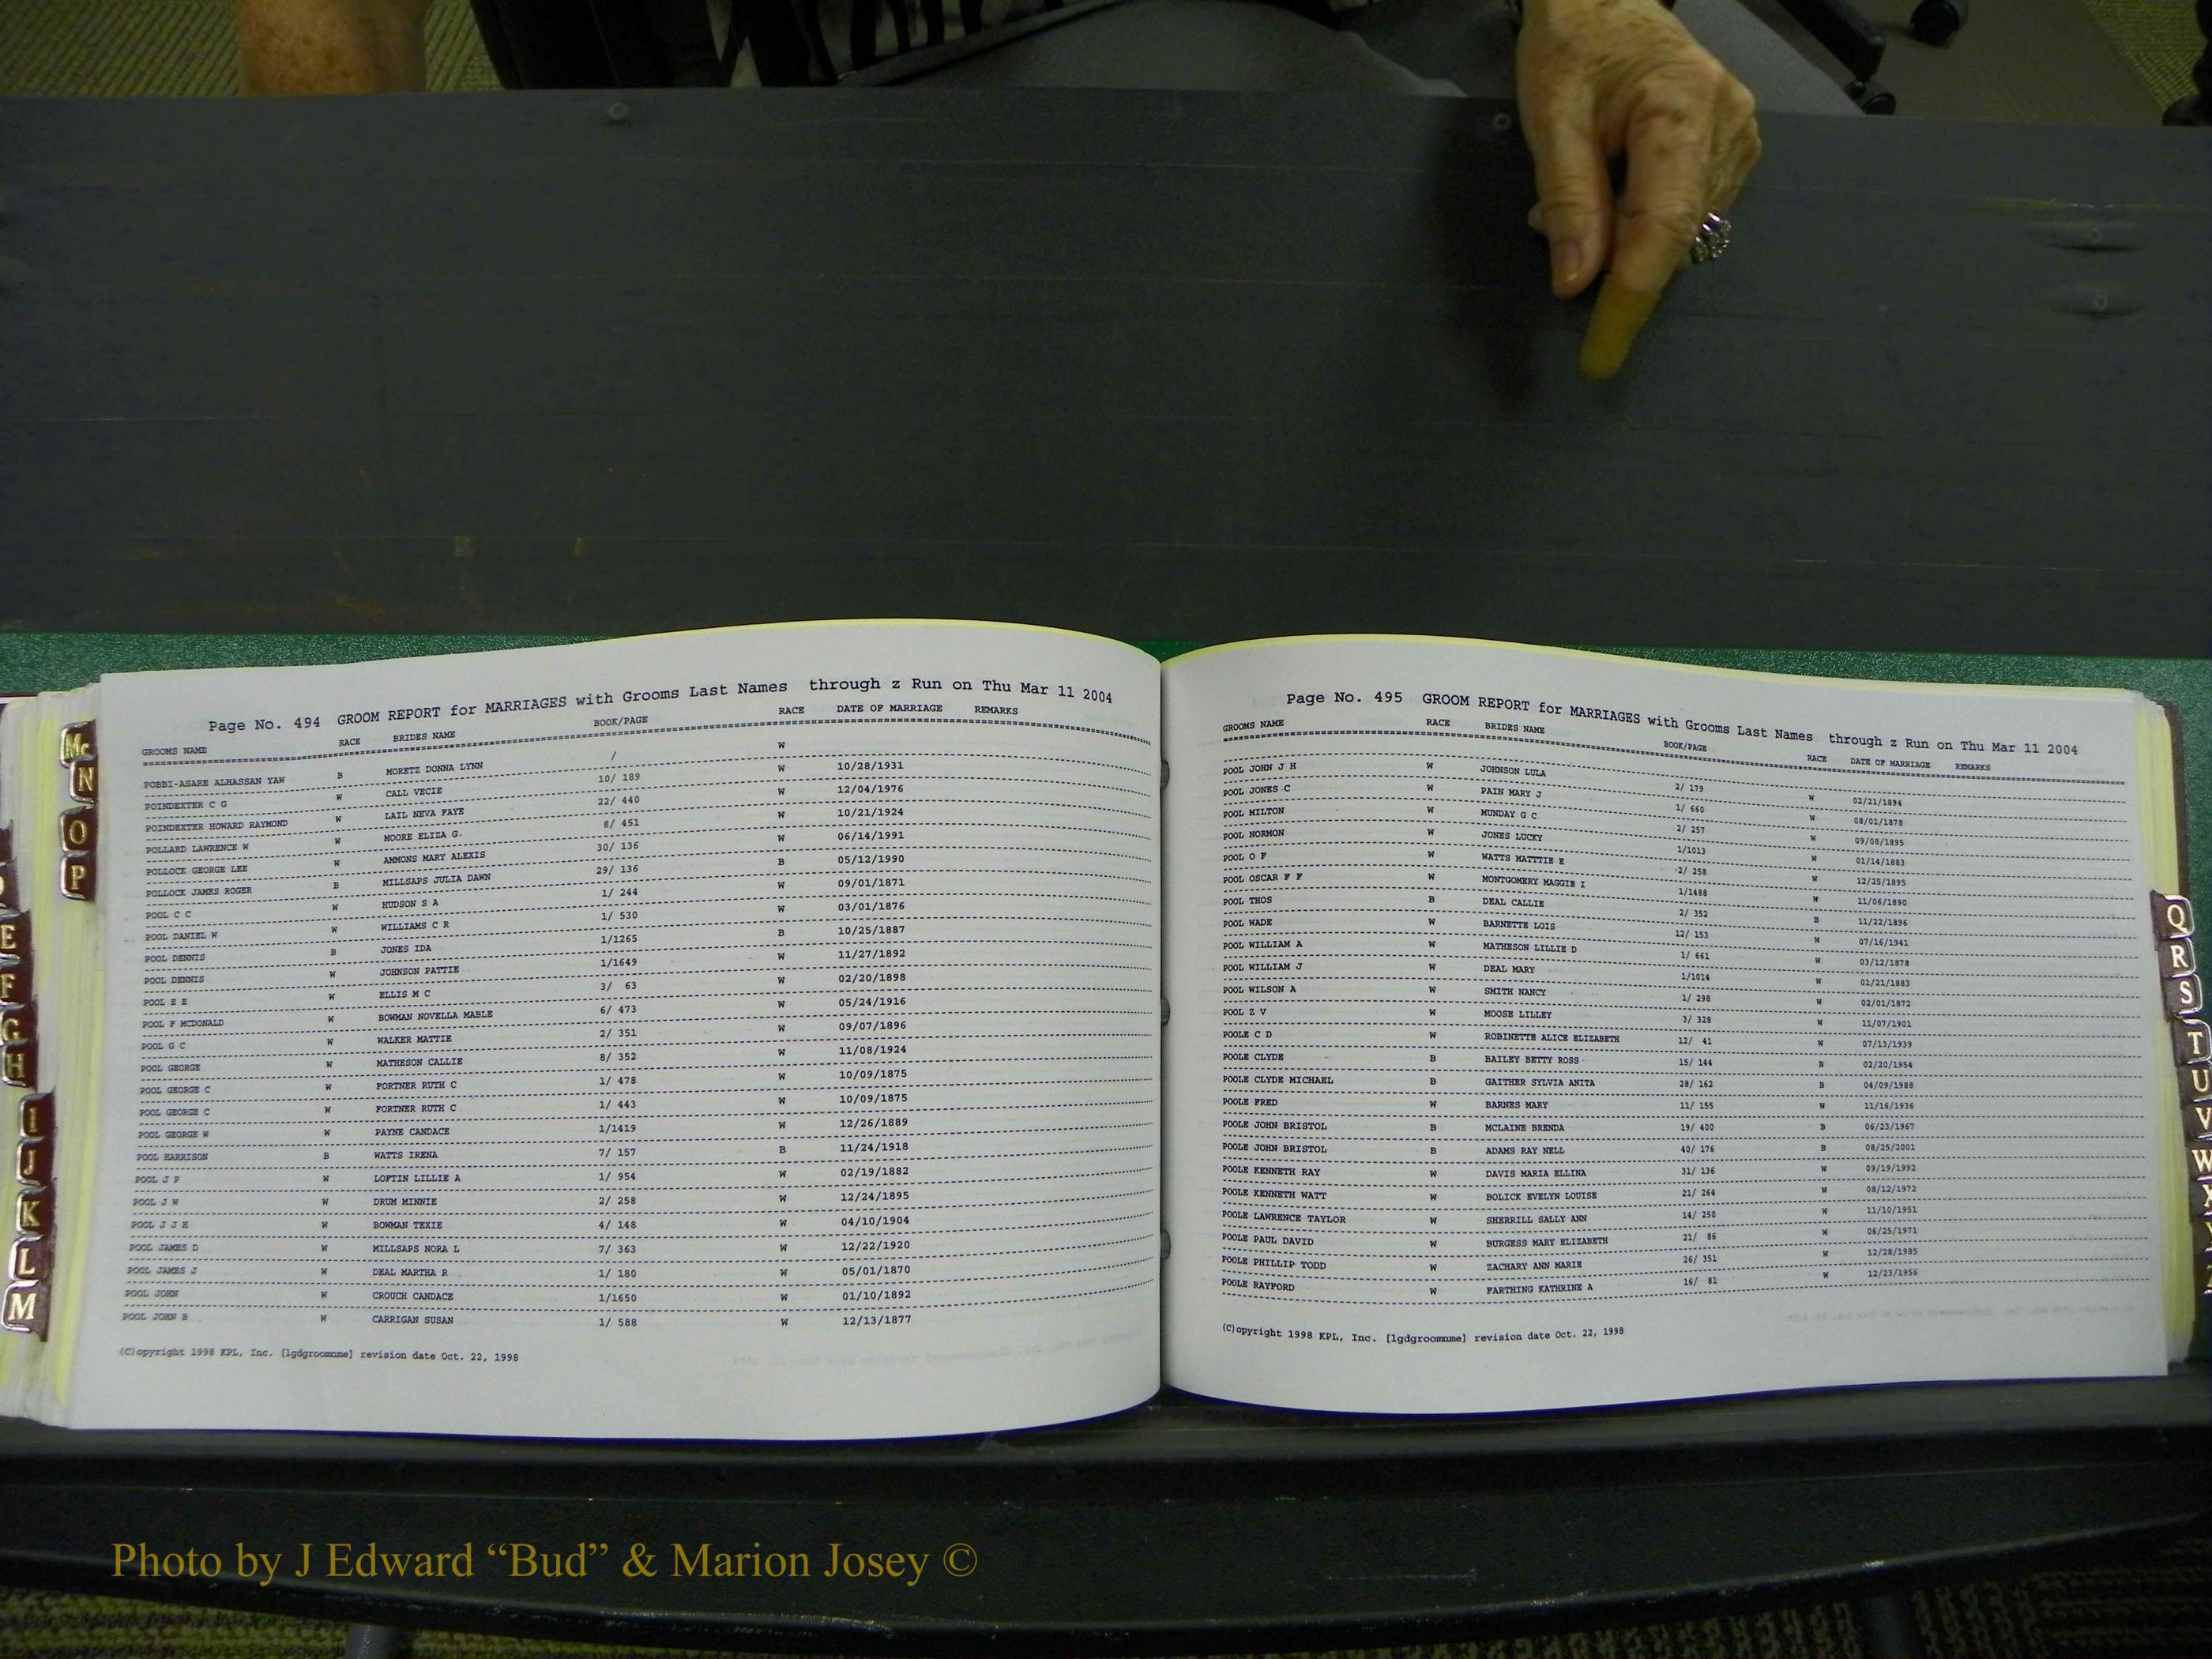 Page No. 494 GROOM REPORT for MARRIAGES with Grooms Last Names through z Run on Thu Mar 11 2004
GROOMS NAME RACE BRIDES NAME BOOK/PAGE RACE DATE OF MARRIAGE REMARKS
POBBI-ASARE ALHASSAN YAW B MORETZ DONNA LYNN / W
POINDEXTER C G W CALL VECIE 10/ 189 W 10/28/1931
POINDEXTER HOWARD RAYMOND W LAIL NEVA FAYE 22/ 440 W 12/04/1976
POLLARD LAWRENCE W W MOORE ELIZA G. 8/ 451 W 10/21/1924
POLLOCK GEORGE LEE W AMMONS MARY ALEXIS 30/ 136 W 06/14/1991
POLLOCK JAMES ROGER B MILLSAPS JULIA DAWN 29/ 136 B 05/12/1990
POOL C C W HUDSON S A 1/ 244 W 09/01/1871
POOL DANIEL W W WILLIAMS C R 1/ 530 W 03/01/1876
POOL DENNIS B JONES IDA 1/1265 B 10/25/1887
POOL DENNIS W JOHNSON PATTIE 1/1649 W 11/27/1892
POOL E E W ELLIS M C 3/ 63 W 02/20/1898
POOL F MCDONALD W BOWMAN NOVELLA MABLE 6/ 473 W 05/24/1916
POOL G C W WALKER MATTIE 2/ 351 W 09/07/1896
POOL GEORGE W MATHESON CALLIE 8/ 352 W 11/08/1924
POOL GEORGE C W FORTNER RUTH C 1/ 478 W 10/09/1875
POOL GEORGE C W FORTNER RUTH C 1/ 443 W 10/09/1875
POOL GEORGE W W PAYNE CANDACE 1/1419 W 12/26/1889
POOL HARRISON B WATTS IRENA 7/ 157 B 11/24/1918
POOL J P W LOFTIN LILLIE A 1/ 954 W 02/19/1882
POOL J W W DRUM MINNIE 2/ 258 W 12/24/1895
POOL J J H W BOWMAN TEXIE 4/ 148 W 04/10/1904
POOL JAMES D W MILLSAPS NORA L 7/ 363 W 12/22/1920
POOL JAMES J W DEAL MARTHA R 1/ 180 W 05/01/1870
POOL JOHN W CROUCH CANDACE 1/1650 W 01/10/1892
POOL JOHN B W CARRIGAN SUSAN 1/ 588 W 12/13/1877
(C)opyright 1998 KPL, Inc. [lgdgroomnme] revision date Oct. 22, 1998
Page No. 495 GROOM REPORT for MARRIAGES with Grooms Last Names through z Run on Thu Mar 11 2004
GROOMS NAME RACE BRIDES NAME BOOK/PAGE RACE DATE OF MARRIAGE REMARKS
POOL JOHN J H W JOHNSON LULA 2/ 179 W 02/21/1894
POOL JONES C W PAIN MARY J 1/ 660 W 08/01/1878
POOL MILTON W MUNDAY G C 2/ 257 W 09/08/1895
POOL NORMON W JONES LUCKY 1/1013 W 01/14/1883
POOL O F W WATTS MATTTIE E 2/ 258 W 12/25/1895
POOL OSCAR F F W MONTGOMERY MAGGIE I 1/1488 W 11/06/1890
POOL THOS B DEAL CALLIE 2/ 352 B 11/22/1896
POOL WADE W BARNETTE LOIS 12/ 153 W 07/16/1941
POOL WILLIAM A W MATHESON LILLIE D 1/ 661 W 03/12/1878
POOL WILLIAM J W DEAL MARY 1/1014 W 01/21/1883
POOL WILSON A W SMITH NANCY 1/ 298 W 02/01/1872
POOL Z V W MOOSE LILLEY 3/ 328 W 11/07/1901
POOLE C D W ROBINETTE ALICE ELIZABETH 12/ 41 W 07/13/1939
POOLE CLYDE B BAILEY BETTY ROSS 15/ 144 B 02/20/1954
POOLE CLYDE MICHAEL B GAITHER SYLVIA ANITA 28/ 162 B 04/09/1988
POOLE FRED W BARNES MARY 11/ 155 W 11/16/1936
POOLE JOHN BRISTOL B MCLAINE BRENDA 19/ 400 B 06/23/1967
POOLE JOHN BRISTOL B ADAMS RAY NELL 40/ 176 B 08/25/2001
POOLE KENNETH RAY W DAVIS MARIA ELLINA 31/ 136 W 09/19/1992
POOLE KENNETH WATT W BOLICK EVELYN LOUISE 21/ 264 W 08/12/1972
POOLE LAWRENCE TAYLOR W SHERRILL SALLY ANN 14/ 250 W 11/10/1951
POOLE PAUL DAVID W BURGESS MARY ELIZABETH 21/ 86 W 06/25/1971
POOLE PHILLIP TODD W ZACHARY ANN MARIE 26/ 351 W 12/28/1985
POOLE RAYFORD W FARTHING KATHRINE A 16/ 81 W 12/23/1956
(C)opyright 1998 KPL, Inc. [lgdgroomnme] revision date Oct. 22, 1998
Mc
N
O
P
E
F
G
H
I
J
K
L
M
Q
R
S
T
U
V
W
X
Photo by J Edward “Bud” & Marion Josey ©